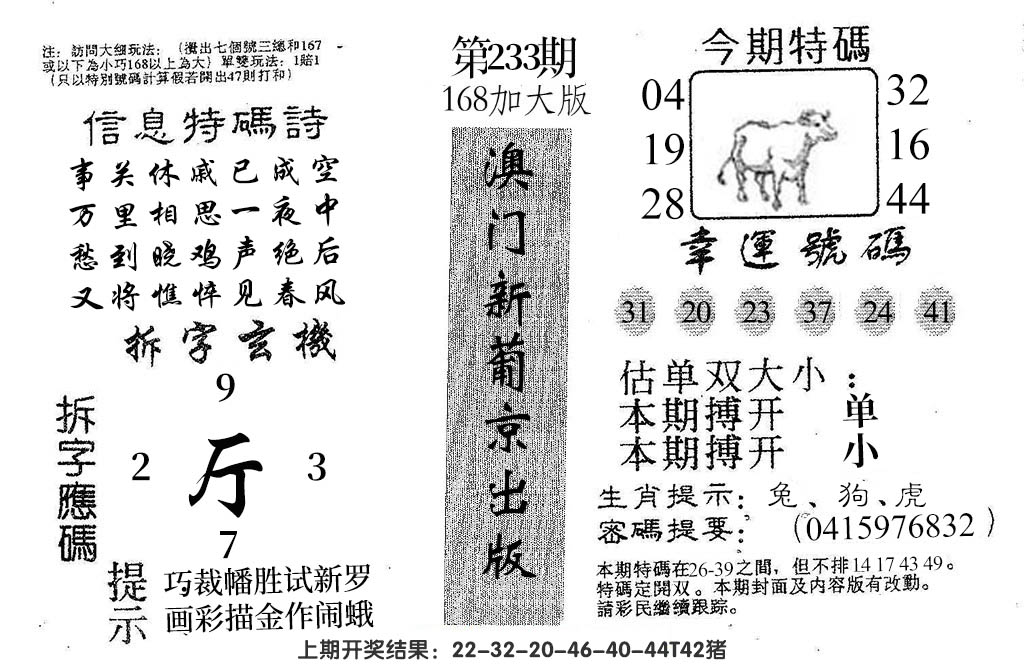 注：訪問大細玩法：（攪出七個號三總和167
或以下為小巧168以上為大）單雙玩法：1賠1
（只以特別號碼計算假若開出47則打和）
信息特碼詩
事关休戚已成空
万里相思一夜中
愁到晓鸡声绝后
又将憔悴见春风
拆字玄機
拆字應碼
9
2 厅 3
7
提示
巧裁幡胜试新罗
画彩描金作闹蛾
第233期
168加大版
澳门新葡京出版
今期特碼
04 32
19 16
28 44
幸運號碼
31 20 23 37 24 41
估单双大小：
本期搏开 单
本期搏开 小
生肖提示：兔、狗、虎
密碼提要：（0415976832）
本期特碼在26-39之間，但不排14 17 43 49。
特碼定開双。本期封面及内容版有改動。
請彩民繼續跟踪。
上期开奖结果：22-32-20-46-40-44T42猪